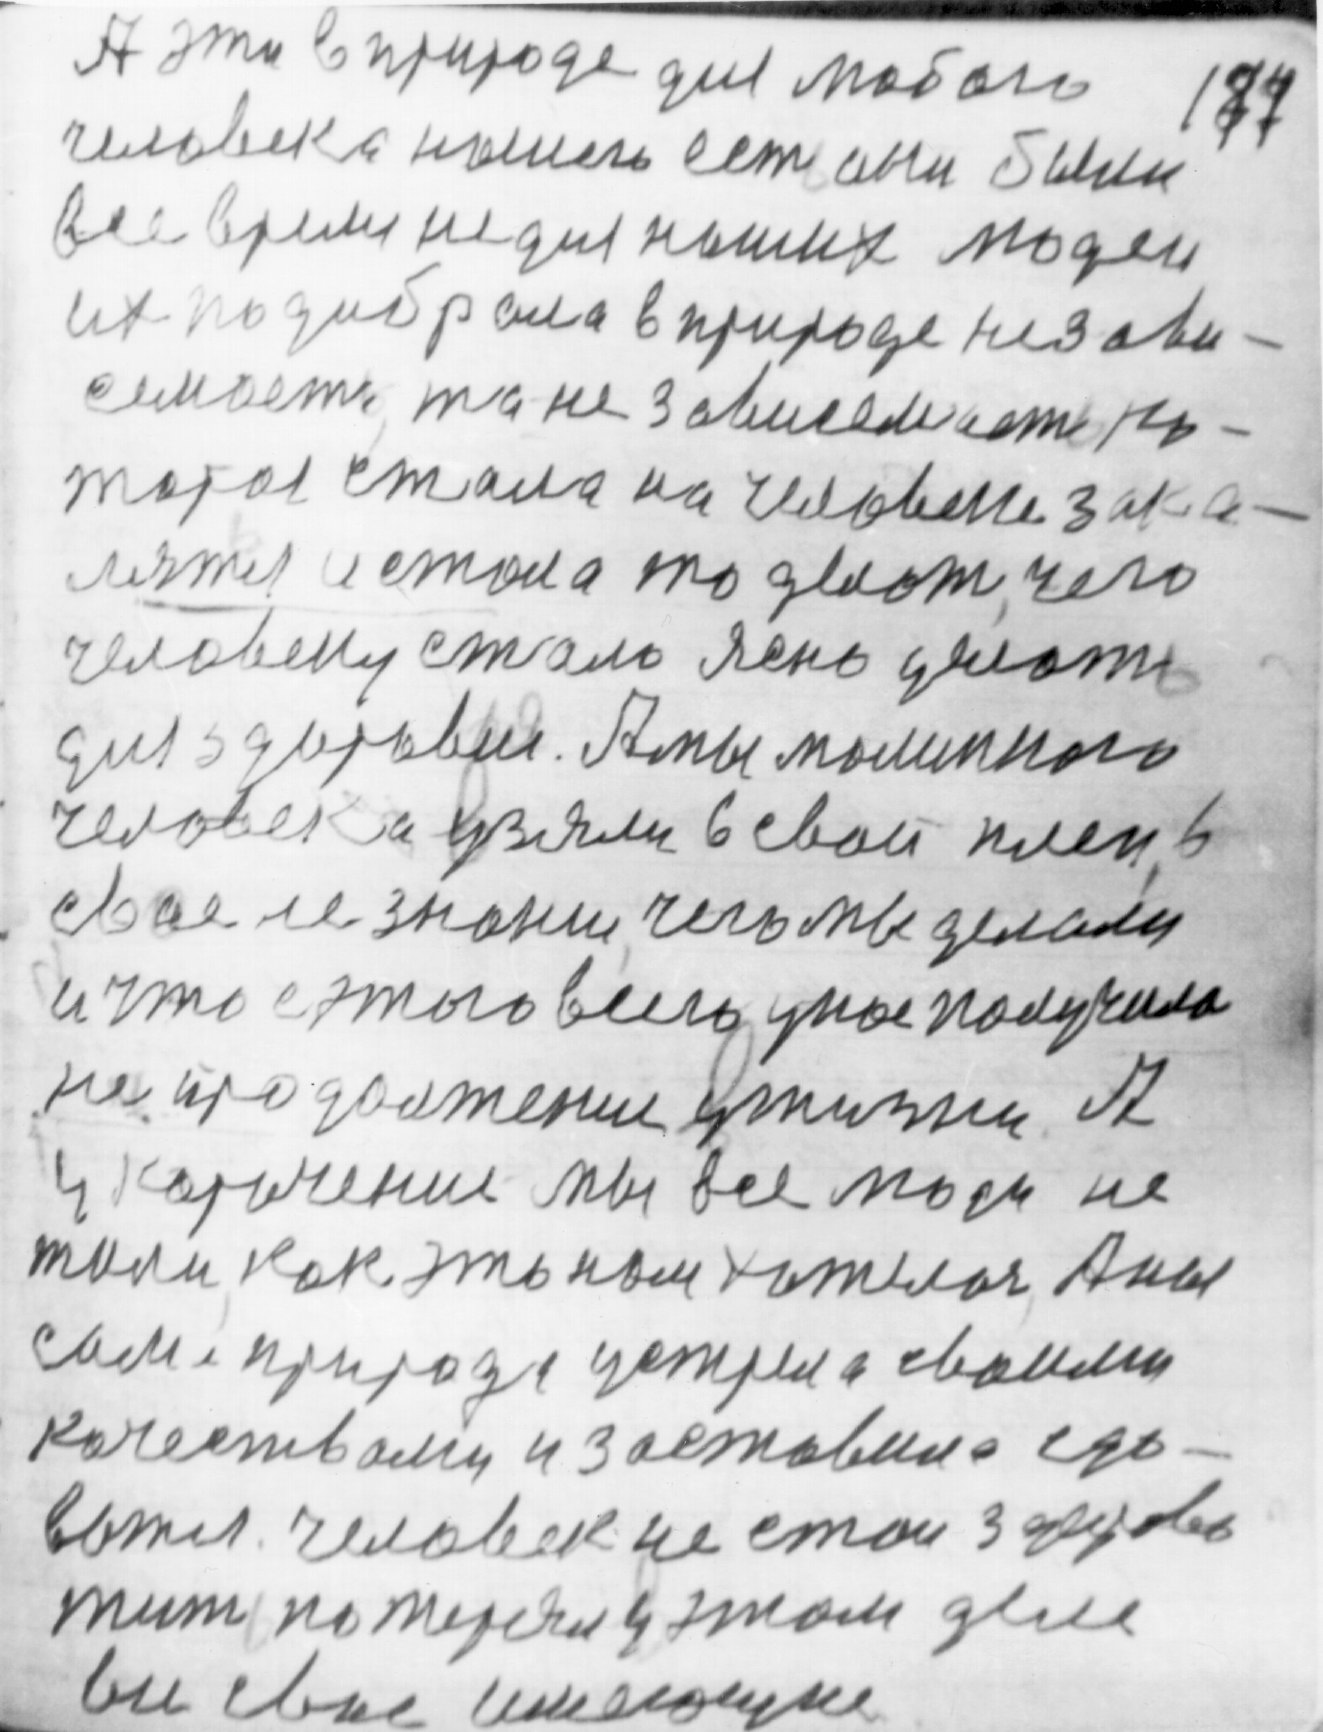 А эти в природе для любого
187
человека нашего есть они были
все время не для наших людей
их подобрала в природе незави-
семость, та не зависемость ко-
торая стала на человеке зака-
лятся и стала то делать, чего
человеку стало ясно делать
для здоровия. А мы
человека узяли в свой плен, в
свое не знание, чего мы делали
и что с этого всего у нас получило
не продолжение у жизни. А
укорочение мы все люди не
жили, как это нам хотелось, А нас
сама природа устрела своими
качествами и заставила сдо-
ватся. Человек не стал здорово
жить, потерял у этом деле
все свое имеющие